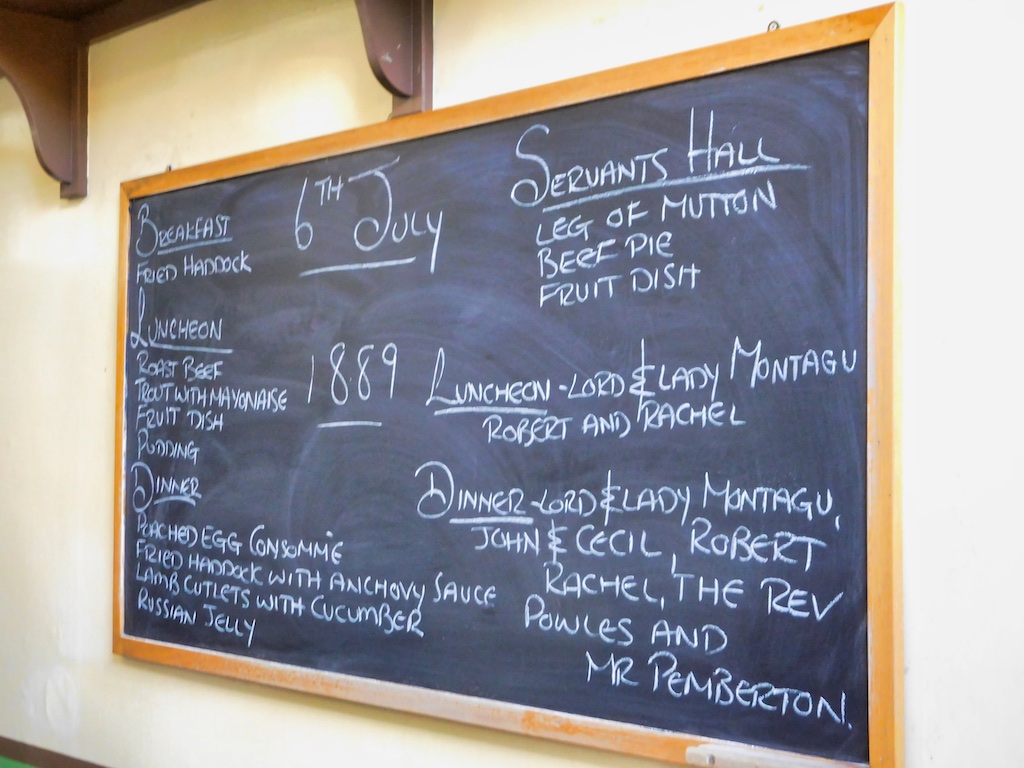 6TH JULY
1889
BREAKFAST
FRIED HADDOCK
LUNCHEON
ROAST BEEF
TROUT WITH MAYONAISE
FRUIT DISH
PUDDING
DINNER
POACHED EGG CONSOMMIE
FRIED HADDOCK WITH ANCHOVY SAUCE
LAMB CUTLETS WITH CUCUMBER
RUSSIAN JELLY
SERVANTS HALL
LEG OF MUTTON
BEEF PIE
FRUIT DISH
LUNCHEON - LORD & LADY MONTAGU
ROBERT AND RACHEL
DINNER - LORD & LADY MONTAGU,
JOHN & CECIL, ROBERT
RACHEL, THE REV
POWLES AND
MR PEMBERTON.